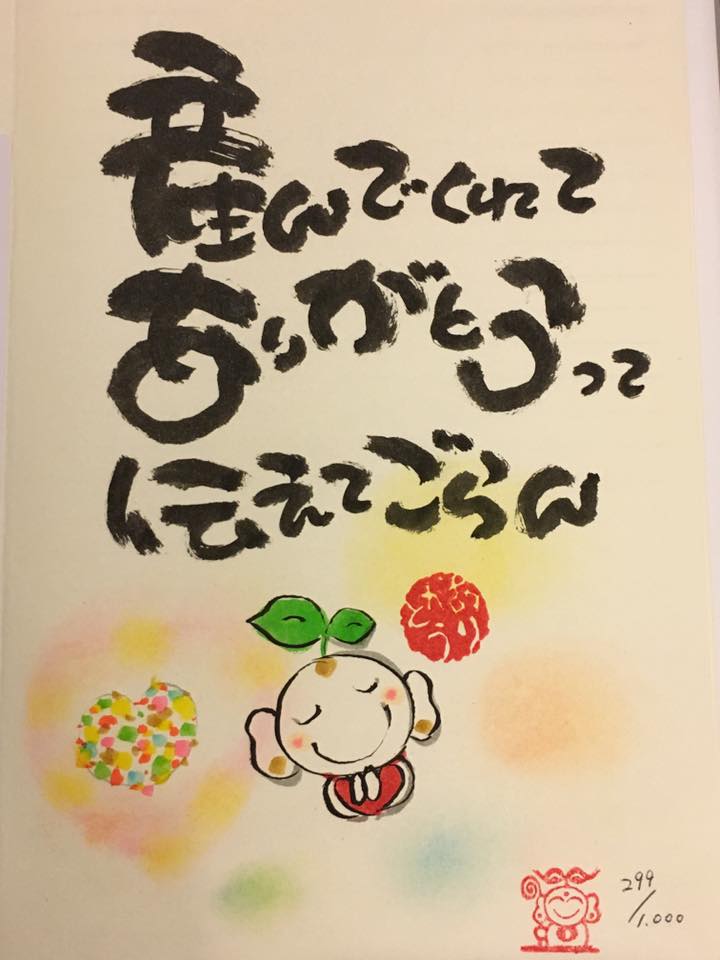 産んでくれて
ありがとうって
伝えてごらん
299/1.000